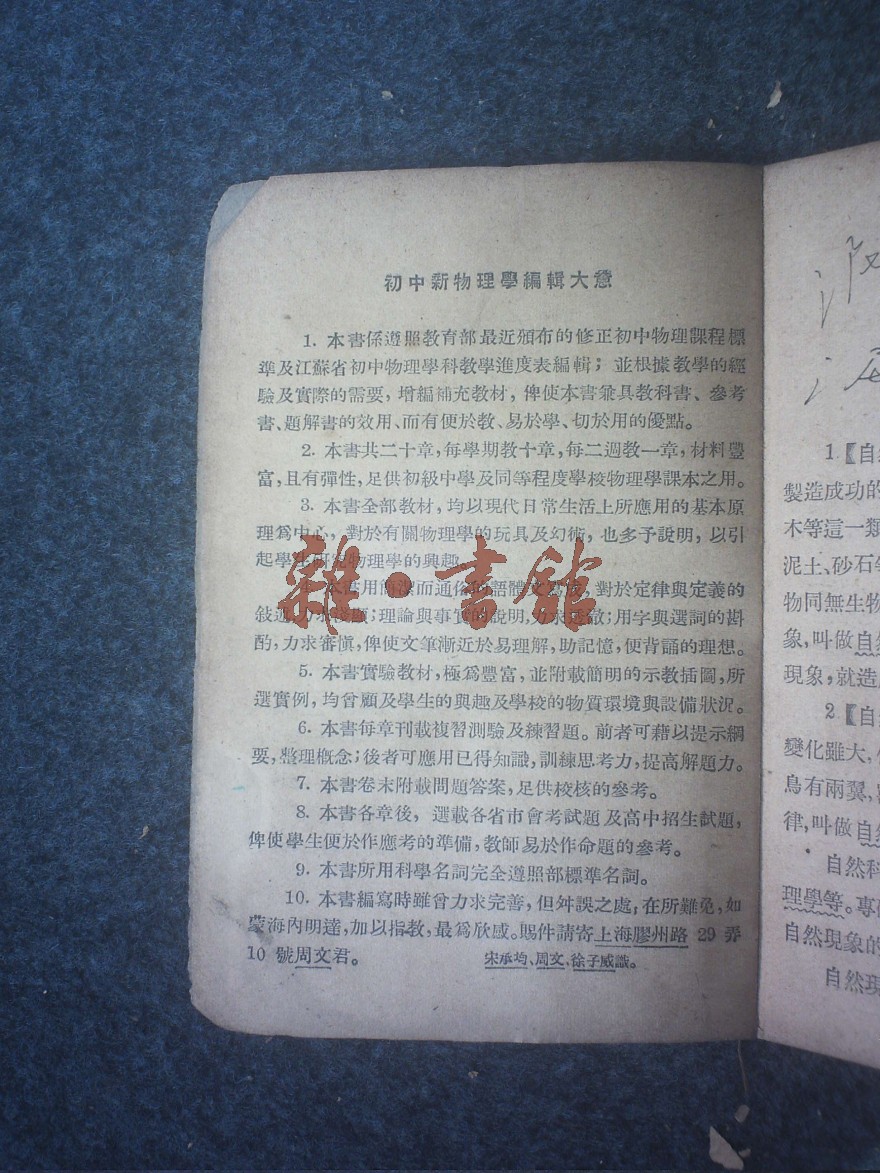 初中新物理學編輯大意
1. 本書係遵照教育部最近頒布的修正初中物理課程標
準及江蘇省初中物理學科教學進度表編輯；並根據教學的經
驗及實際的需要，增編補充教材，俾使本書兼具教科書、參考
書、題解書的效用、而有便於教、易於學、切於用的優點。
2. 本書共二十章，每學期教十章，每二週教一章，材料豐
富，且有彈性，足供初級中學及同等程度學校物理學課本之用。
3. 本書全部教材，均以現代日常生活上所應用的基本原
理爲中心，對於有關物理學的玩具及幻術，也多予說明，以引
起學生研究物理學的興趣
雜·書館
對於定律與定義的
敍述
理論與事實的說明，
用字與選詞的斟
酌，力求審愼，俾使文筆漸近於易理解，助記憶，便背誦的理想。
5. 本書實驗教材，極爲豐富，並附載簡明的示教插圖，所
選實例，均曾顧及學生的興趣及學校的物質環境與設備狀況。
6. 本書每章刊載複習測驗及練習題。前者可藉以提示綱
要，整理概念；後者可應用已得知識，訓練思考力，提高解題力。
7. 本書卷末附載問題答案，足供校核的參考。
8. 本書各章後，選載各省市會考試題及高中招生試題，
俾使學生便於作應考的準備，教師易於作命題的參考。
9. 本書所用科學名詞完全遵照部標準名詞。
10. 本書編寫時雖曾力求完善，但舛誤之處，在所難免，如
蒙海內明達，加以指教，最爲欣感。賜件請寄上海膠州路 29 弄
10 號周文君。
宋承均、周文、徐子威識。
1.【自
製造成功的
木等這一類
泥土、砂石
物同無生物
象，叫做自
現象，就造
2.【自
變化雖大，
鳥有兩翼，
律，叫做自
自然科
理學等。專
自然現象的
自然現